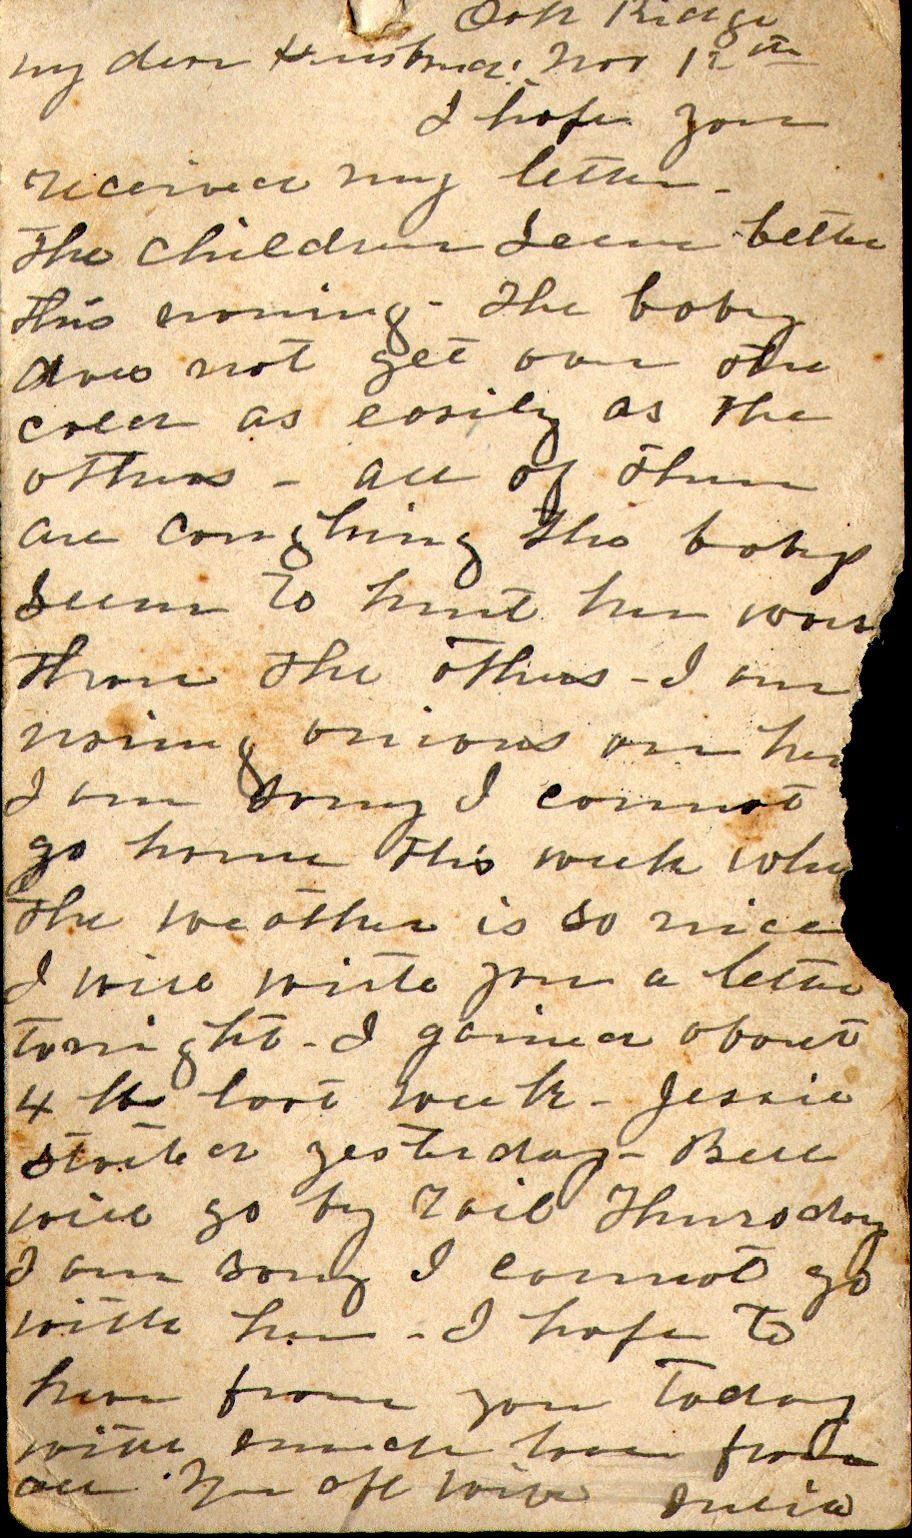 Oak Ridge
my dear Husband: Nov 12th
I hope you
received my letter -
The children seem better
this morning - The baby
does not get over the
cold as easily as the
others - all of them
are coughing the babys
seem to hurt her worse
than the others - I am
using onions on her
I am sorry I cannot
go home this week when
the weather is so nice
I will write you a letter
tonight - I gained about
4 lbs last week - Jessie
started yesterday - Bell
will go by rail Thursday
I am sorry I cannot go
with her - I hope to
hear from you today
with much love from
all your aff wife Julia